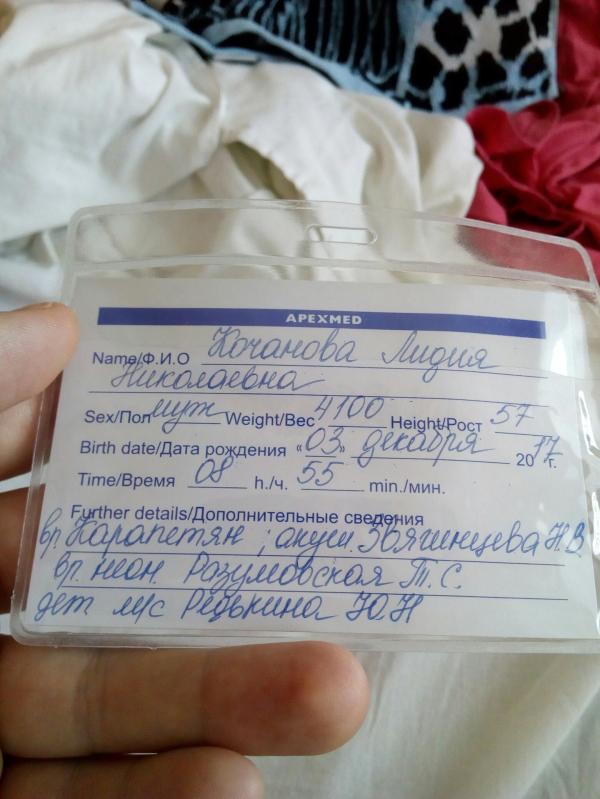 APEXMED
Name/Ф.И.О Кочанова Лидия
Николаевна
Sex/Пол муж Weight/Вес 4100 Height/Рост 57
Birth date/Дата рождения «03» декабря 2017 г.
Time/Время 08 h./ч. 55 min./мин.
Further details/Дополнительные сведения
вр. Карапетян; акуш. Звягинцева Н.В.
вр. неон. Разумовская Т.С.
дет м/с Редькина Ю.Н